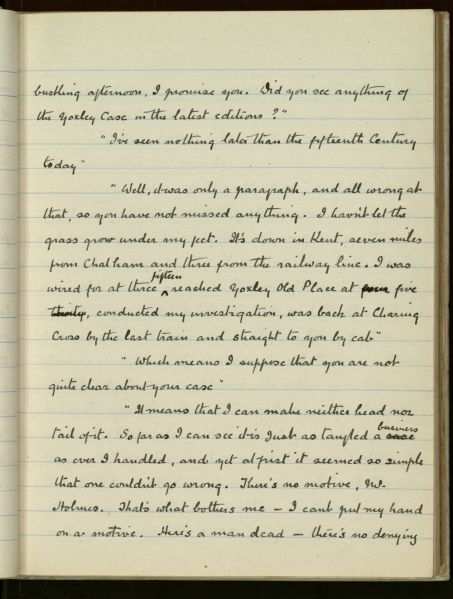 bustling afternoon, I promise you. Did you see anything of
the Yoxley Case in the latest editions?"
"I've seen nothing later than the fifteenth Century
today"
"Well, it was only a paragraph, and all wrong at
that, so you have not missed anything. I havn't let the
grass grow under my feet. It's down in Kent, seven miles
from Chatham and three from the railway line. I was
wired for at three fifteen, reached Yoxley Old Place at four five
thirty, conducted my investigation, was back at Charing
Cross by the last train and straight to you by cab"
"Which means I suppose that you are not
quite clear about your case"
"It means that I can make neither head nor
tail of it. So far as I can see it is just as tangled a case business
as ever I handled, and yet at first it seemed so simple
that one couldn't go wrong. There's no motive, Mr.
Holmes. That's what bothers me — I can't put my hand
on a motive. Here's a man dead — there's no denying